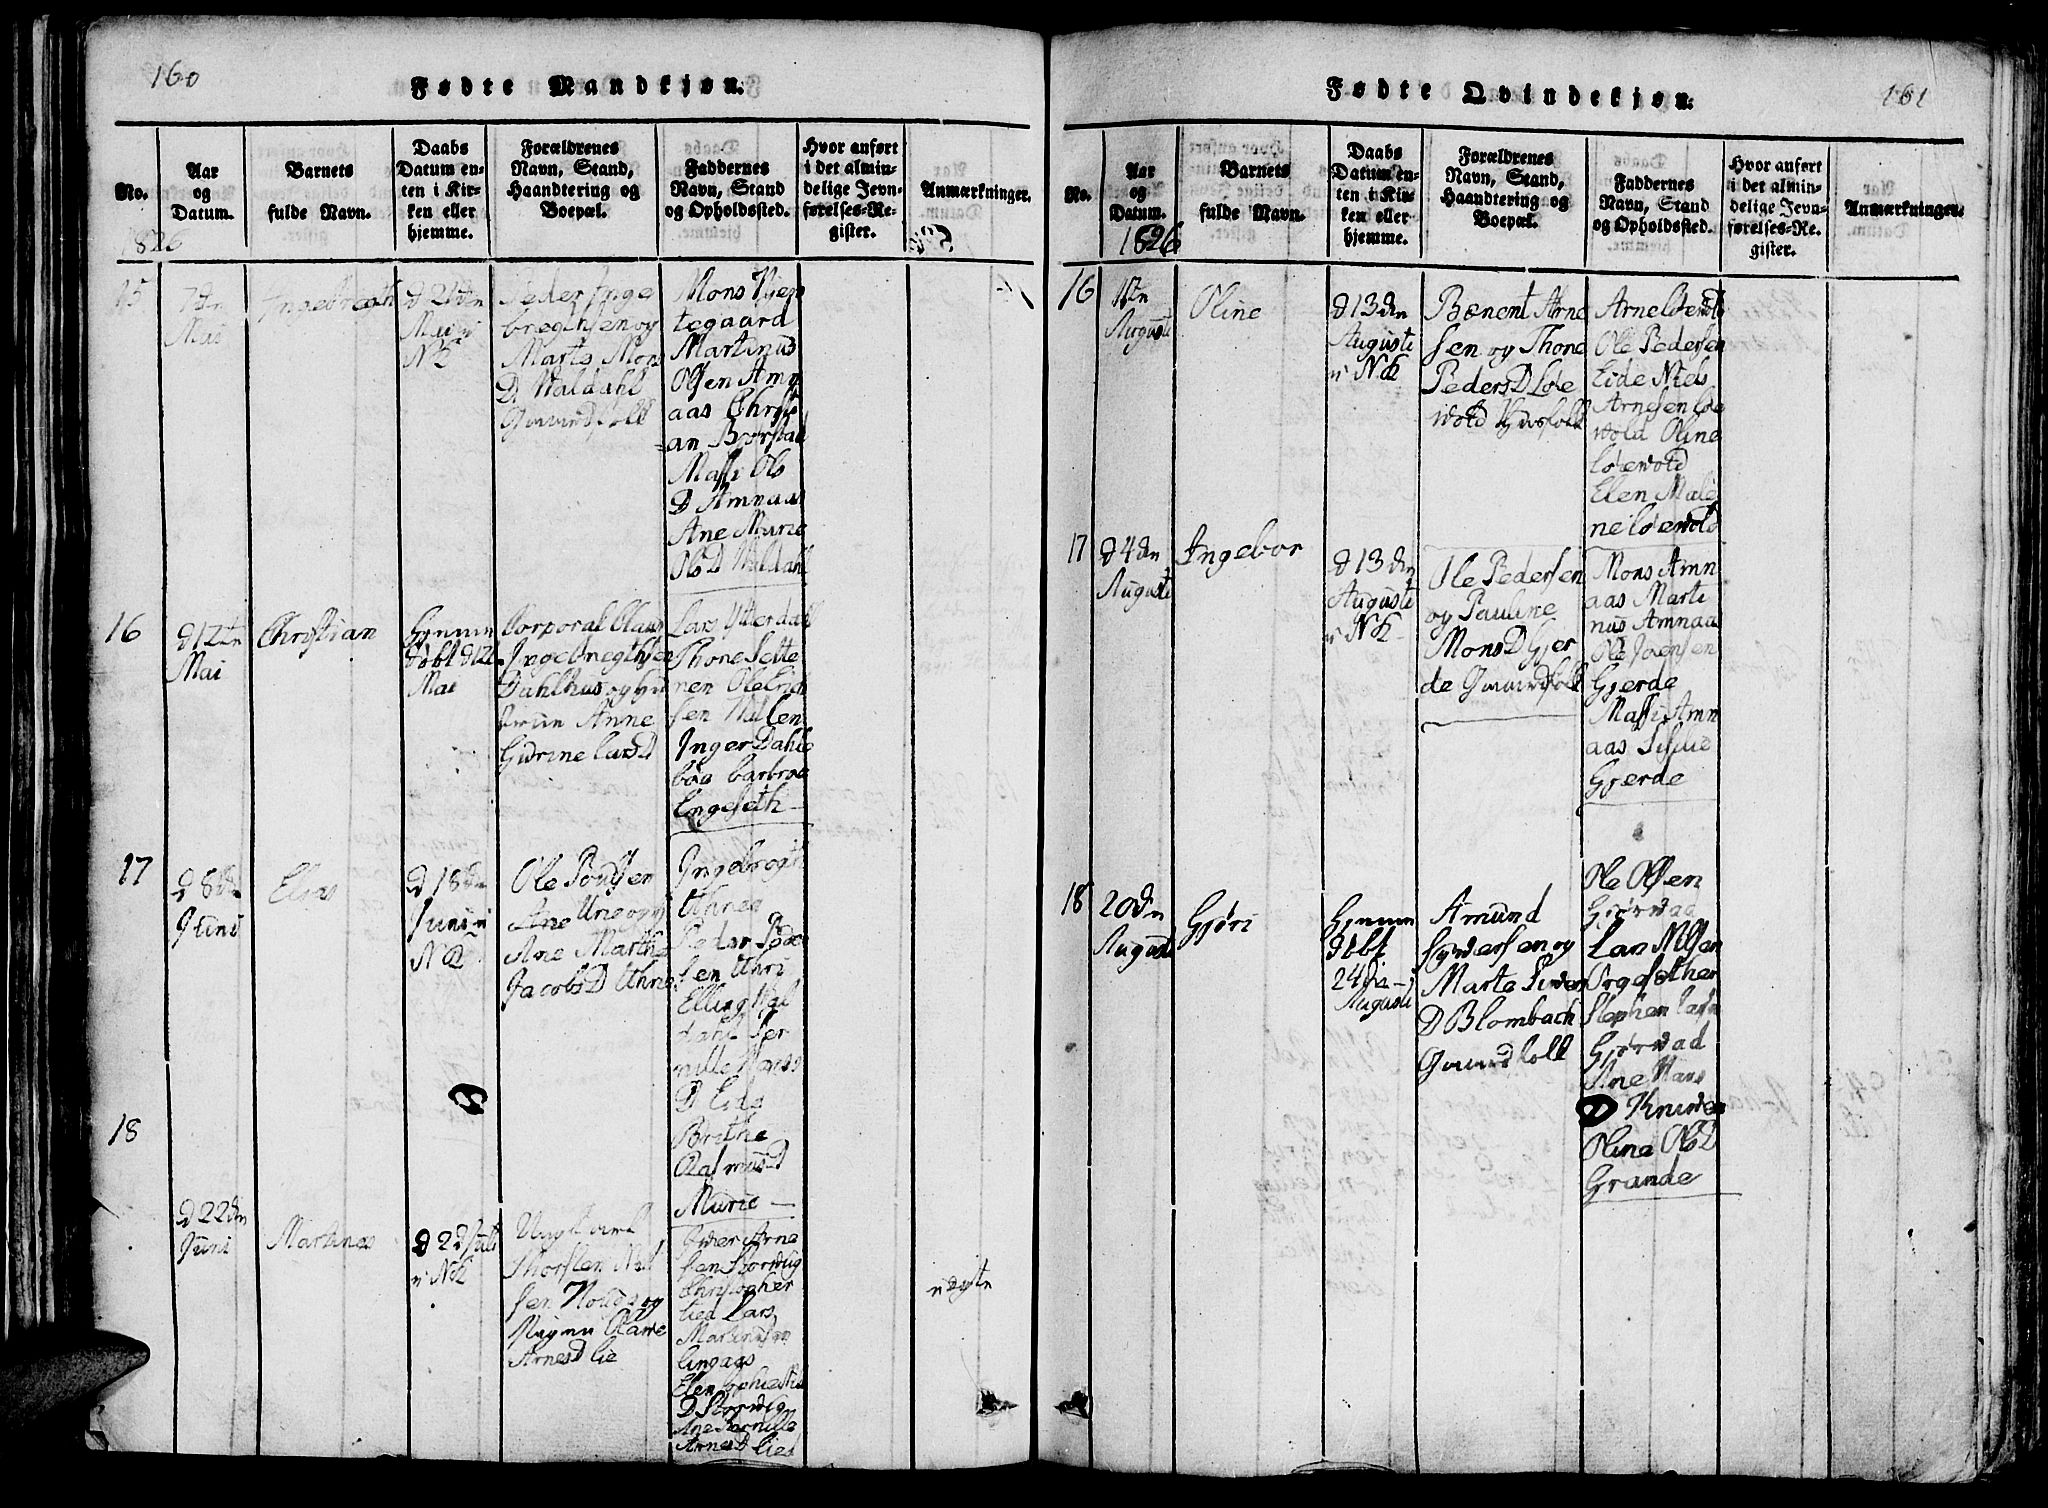 160
Fødte Mandkjøn.
No.
Aar
og
Datum.
1826
Barnets
fulde Navn.
Daabs
Datum en-
ten i Kir-
ken eller
hjemme.
Forældrenes
Navn, Stand,
Haandtering og
Boepæl.
Faddernes
Navn, Stand
og Opholdssted.
Hvor anført
i det almin-
delige Jevn-
førelses-Re-
gister.
Anmærkninger.
15
7dn
Mai
Ingebregth
d 21dn
NK
Peder Inge
bregthsen og
Marte Mons
D Waldahl
Gaardfolk
Mons
tegaard
Martinus
Olsen Amn
aas Christi
an
Massi Ols
D Amnaas
Ane Marie
OlsD Waldahl
16
d 12tn
Mai
Christian
Hjemm
døbt d 12
Mai
Corporal Claus
Ingebregthsen
Dahlhus og
Anne
Gurine LarsD
Lars Ytterdahl
Thone Sette
nen Ole Erich
sen
Inger Dahle
bøa barbroe
Engeseth
17
d 8dn
Juni
Elias
d 18dn
Juni i
NK
Ole
Ane
Ane Marthe
JacobsD Uhri
Ingebregth
Uhrie
Peder Peder
sen Uhri
Elling Wal
dahl Per
nille Hans
D Eide
Brithe
RasmusD
Murie
18
d 22dn
Juni
Martinus
d 2d Juli
i NK
Ungkarl
Thorsten Nil
sen og
ArnesD Lie
Peder Arne
sen Storwig
Christopher
Lied Lars
Martinusen
Lingaas
Elen
D Storwig
Ane Pernille
ArnesD Lied
uægte
161
Fødte Qvindekjøn.
No.
Aar
og
Datum.
1826
Barnets
fulde Navn.
Daabs
Datum en-
ten i Kir-
ken eller
hjemme.
Forældrenes
Navn, Stand,
Haandtering og
Boepæl.
Faddernes
Navn, Stand
og Opholdssted.
Hvor anført
i det almin-
delige Jevn-
førelses-Re-
gister.
Anmærkninger.
16
Augusti
Oline
d 13dn
Augusti
i NK
Bænent Arne
sen og Thone
PedersD Løe
wold
Arne Løewold
Ole Pedersen
Eide Niels
Arnesen Løe
wold Oline
Løewold
Elen Male
ne Løewold
17
d 4dn
Augusti
Ingebor
d 13dn
Augusti
i NK
Ole Pedersen
og Pauline
MonsD Gjer
de Gaardfolk
Mons Amn
aas Marti
nus Amnaas
Ole Joensen
Gjerde
Massi Amn
aas Sillie
Gjerde
18
20dn
Augusti
Gjøri
Hjemm
døbt
24de
Augusti
Amund
Syversen og
Marte Siver
D Blombach
Gaardfolk
Ole Olsen
Gjørwad
Lars Nilsen
Orgesether
Stephen Larsn
Gjørwad
Ane Hans
D
Oline OlsD
Grande